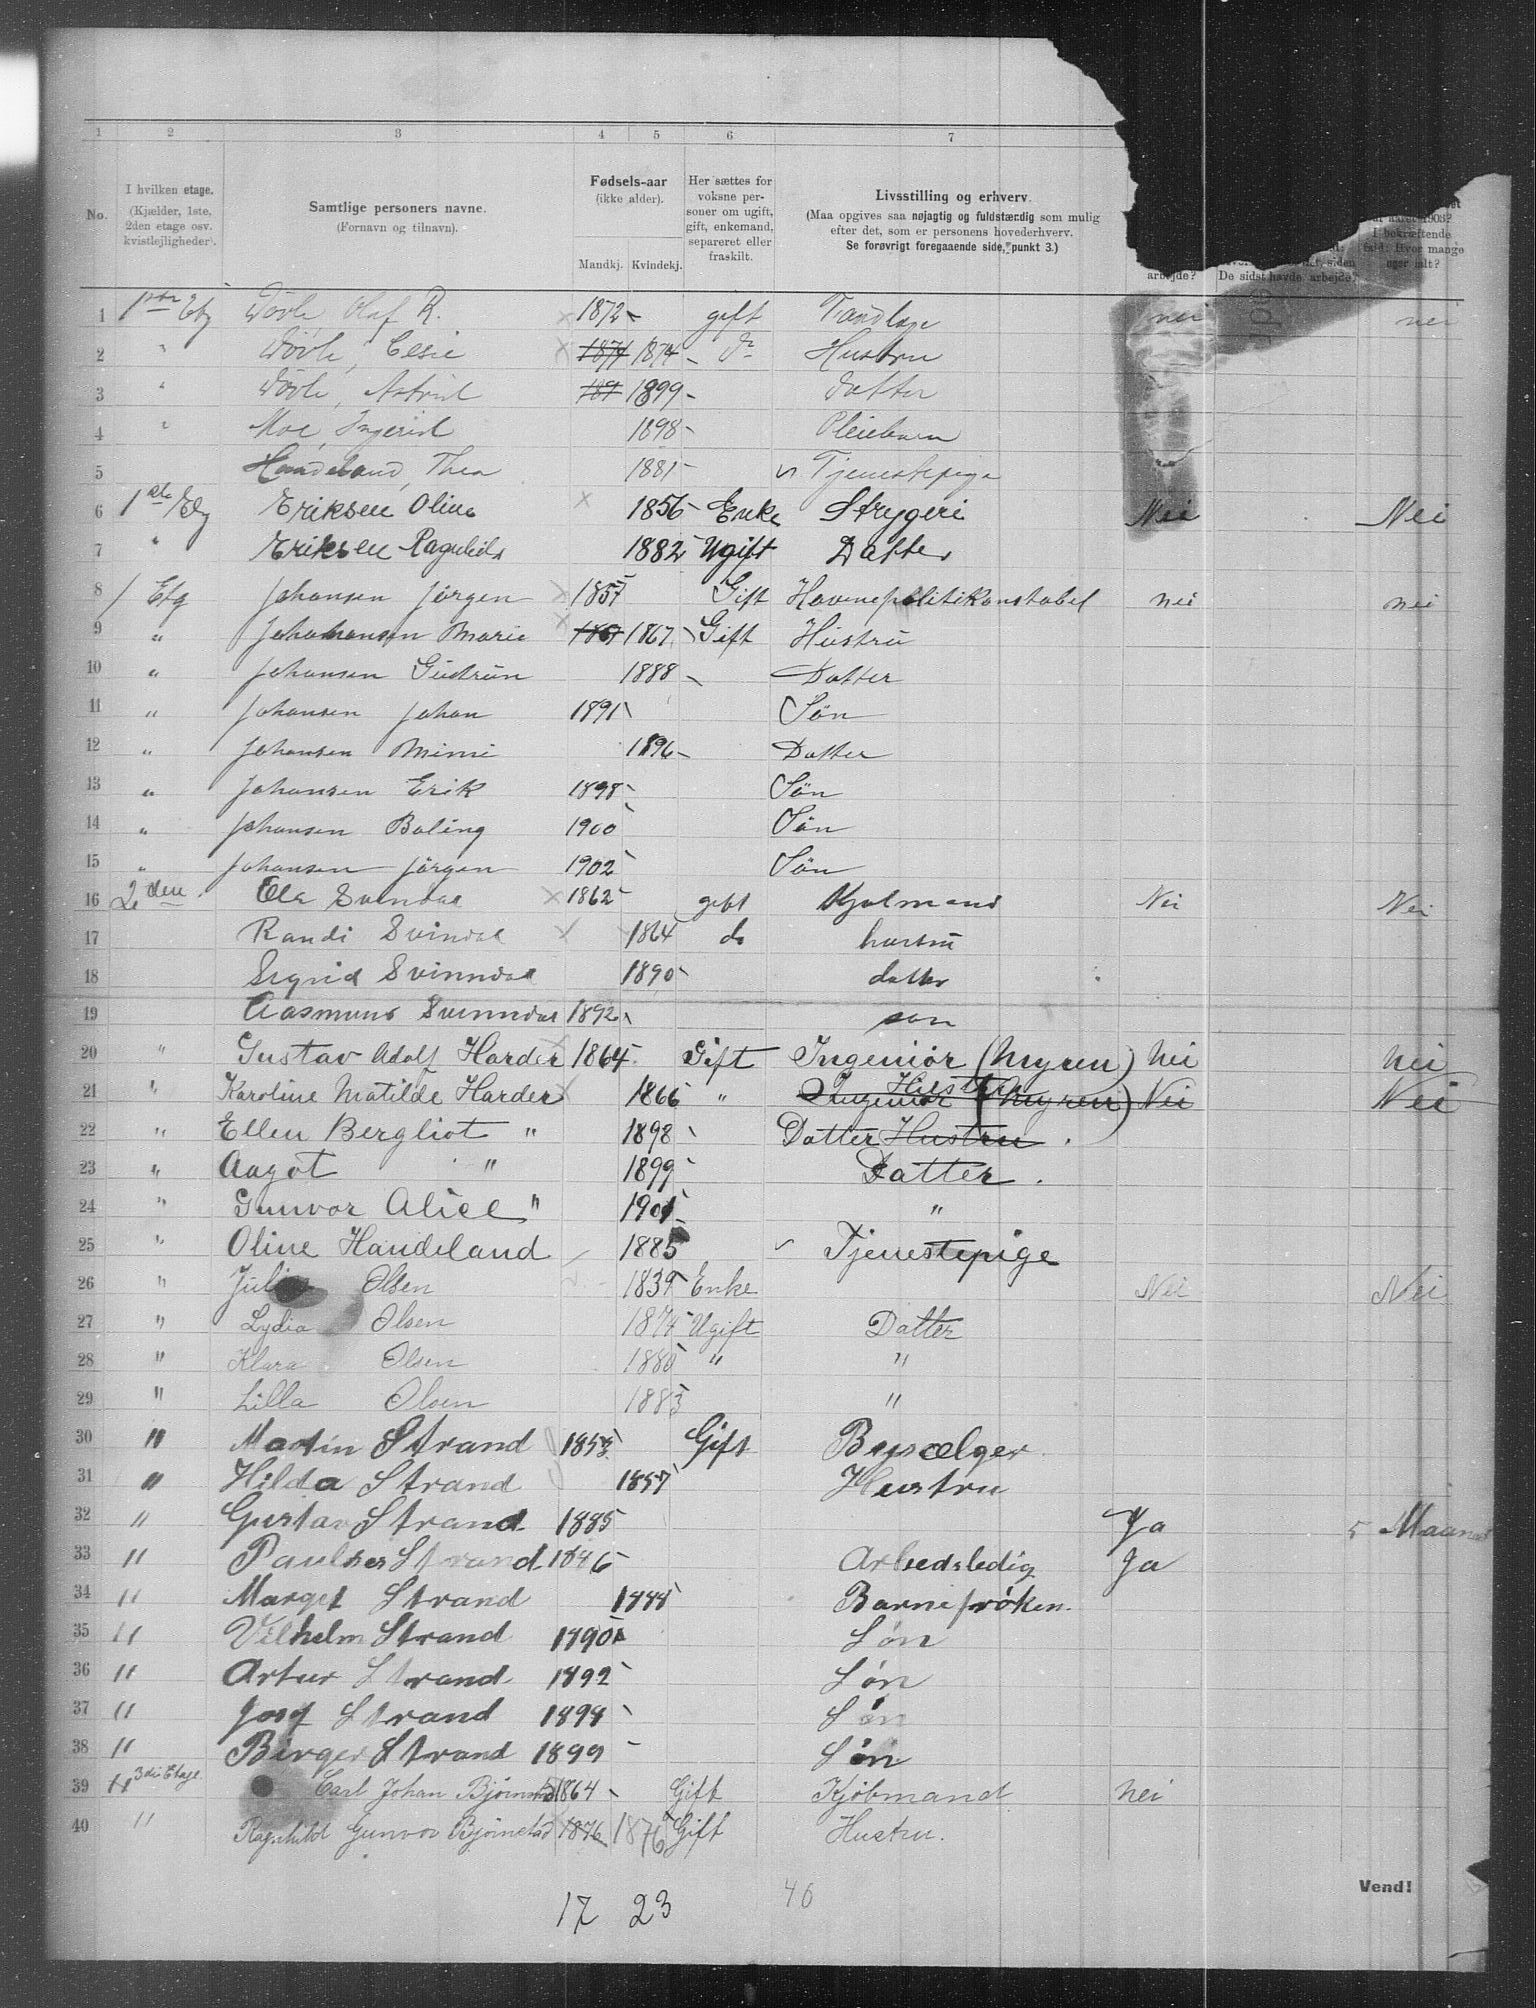 1 2 3 4 5 6 7
No.
I hvilken etage.
(Kjælder, 1ste,
2den etage osv.
kvistlejligheder).
Samtlige personers navne.
(Fornavn og tilnavn).
Fødsels-aar
(ikke alder).
Mandkj. Kvindekj.
Her sættes for
voksne per-
soner om ugift,
gift, enkemand,
separeret eller
fraskilt.
Livsstilling og erhverv.
(Maa opgives saa nøjagtig og fuldstændig som mulig
efter det, som er personens hovederhverv.
Se forøvrigt foregaaende side, punkt 3.)
arbejde?
De sidst havde arbejde?
aaret 1903?
I bekræftende
fald: Hvor mange
uger ialt?
1 1ste Etg Olaf R. 1872 gift nei nei
2 " 1874 1874 do Hustru
3 " Astrid 189 1899 Datter
4 " Moe, Ingerid 1898 Pleiebarn
5 Handeland, Thea 1881 Tjenestepige
6 1ste Etg Eriksen Oline 1856 Enke Strygeri Nei Nei
7 " Eriksen Ragnhild 1882 Ugift Datter
8 1 Etg Johansen Jørgen 1857 Gift Havnepolitikonstabel nei nei
9 " Johahansen Marie 1867 1867 Gift Hustru
10 " Johansen Gudrun 1888 Datter
11 " Johansen Johan 1891 Søn
12 " Johansen Mimi 1896 Datter
13 " Johansen Erik 1898 Søn
14 " Johansen Baling 1900 Søn
15 " Johansen Jørgen 1902 Søn
16 2den Ole Svendal 1862 gift Kjølmand Nei Nei
17 Randi Svindal 1864 do hustru
18 Sigrid Svinndal 1890 datter
19 Aasmund Svinndal 1892 søn
20 " Gustav Adolf Harder 1864 Gift Ingeniør (Myren) Nei Nei
21 " Karoline Matilde Harder 1866 " Ingeniør (Myren) Hustru Nei Nei
22 " Ellen Bergliot " 1898 Datter Hustru
23 " Aagot " 1899 Datter
24 " Gunvor Alice " 1901 "
25 " Oline Handeland 1885 Tjenestepige
26 " Julie Olsen 1839 Enke Nei Nei
27 " Lydia Olsen 1875 Ugift Datter
28 " Klara Olsen 1880 " "
29 " Lilla Olsen 1883 "
30 " Martin Strand 1853 Gift Bysælger
31 " Hilda Strand 1857 Hustru
32 " Gustav Strand 1885 Ja 5 Maaned
33 " Strand 1886 Arbeidsledig Ja
34 " Marget Strand 1888 Barnefrøken
35 " Vilhelm Strand 1890 Søn
36 " Artur Strand 1892 Søn
37 " Josef Strand 1898 Søn
38 " Birger Strand 1899 Søn
39 " 3die Etage Carl Johan Bjørnstad 1864 Gift Kjøbmand Nei
40 " Ragnhild Gunvor Bjørnstad 1876 1876 Gift Hustru.
Vend!
17 23 40